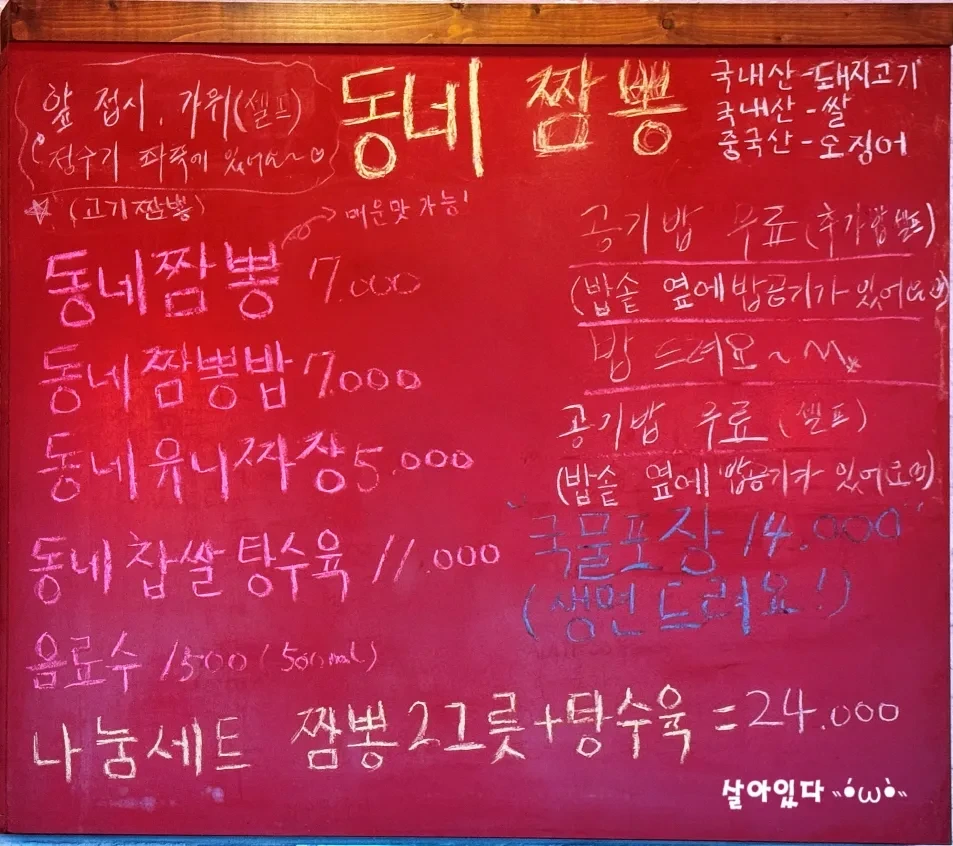 앞 접시, 가위(셀프)
정수기 좌측에 있어요~♡
동네 짬뽕
국내산 - 돼지고기
국내산 - 쌀
중국산 - 오징어
☆ (고기짬뽕)
매운맛 가능!
동네짬뽕 7.000
동네짬뽕밥 7.000
동네유니짜장 5.000
동네찹쌀탕수육 11.000
음료수 1500 (500mL)
공기밥 무료 (추가밥 셀프)
(밥솥 옆에 밥공기가 있어요)
밥 드려요~
공기밥 무료 (셀프)
(밥솥 옆에 밥공기가 있어요)
국물포장 14.000
(생면 드려요!)
나눔세트 짬뽕2그릇+탕수육 = 24.000
살아있다